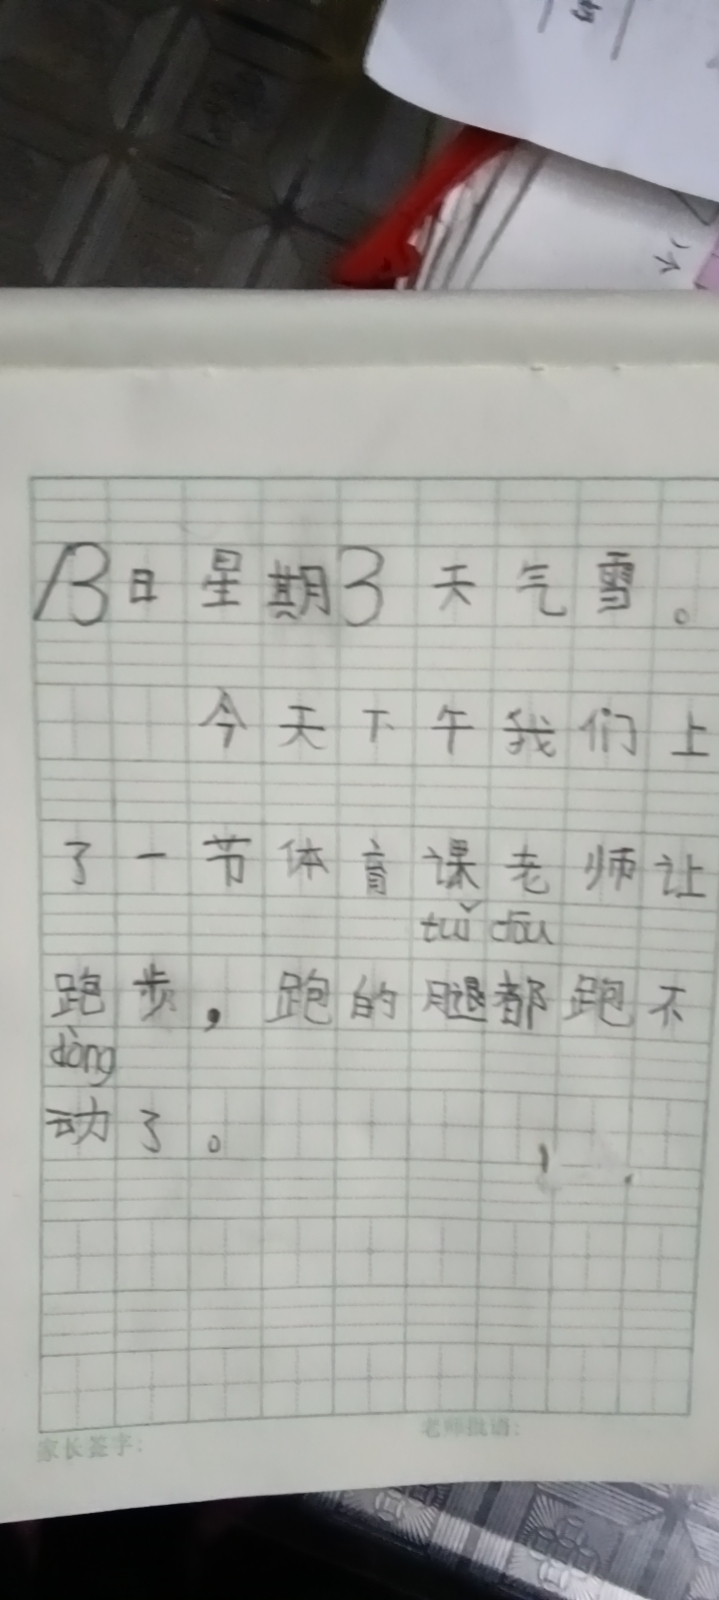 13日星期3天气雪。
今天下午我们上
了一节体育课老师让
tuǐ dōu
跑步，跑的腿都跑不
dòng
动了。
家长签字：
老师批语：